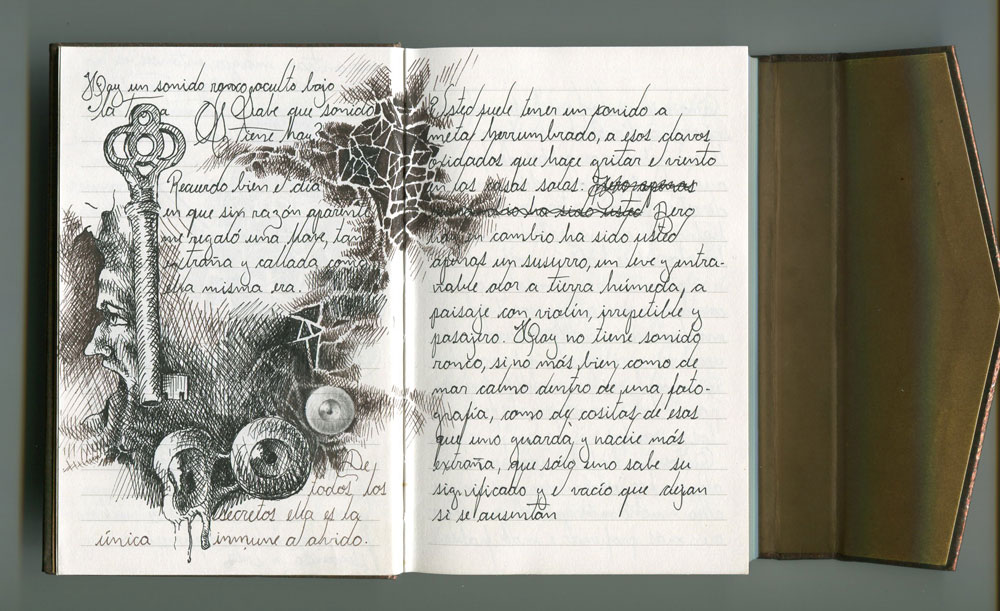 Hay un sonido ronco oculto bajo
la
El Sabe que sonido
tiene hay?
Recuerdo bien el día
en que sin razón aparente
me regaló una llave, tan
extraña y callada como
ella misma era.
De
todos los
secretos ella es la
única inmune al olvido.
Usted suele tener un sonido a
metal herrumbrado, a esos clavos
oxidados que hace gritar e viento
en las casas solas. Pero apenas
ha sido usted Pero
cambio ha sido usted
apenas un susurro, un leve y entra-
ñable olor a tierra húmeda, a
paisaje con violín, irrepetible y
pasajero. Hay no tiene sonido
ronco, si no más bien como de
mar calmo dentro de una foto-
grafía, como de cositas de esas
que uno guarda y nadie más
extraña, que sólo uno sabe su
significado y e vacío que dejan
si se ausentan